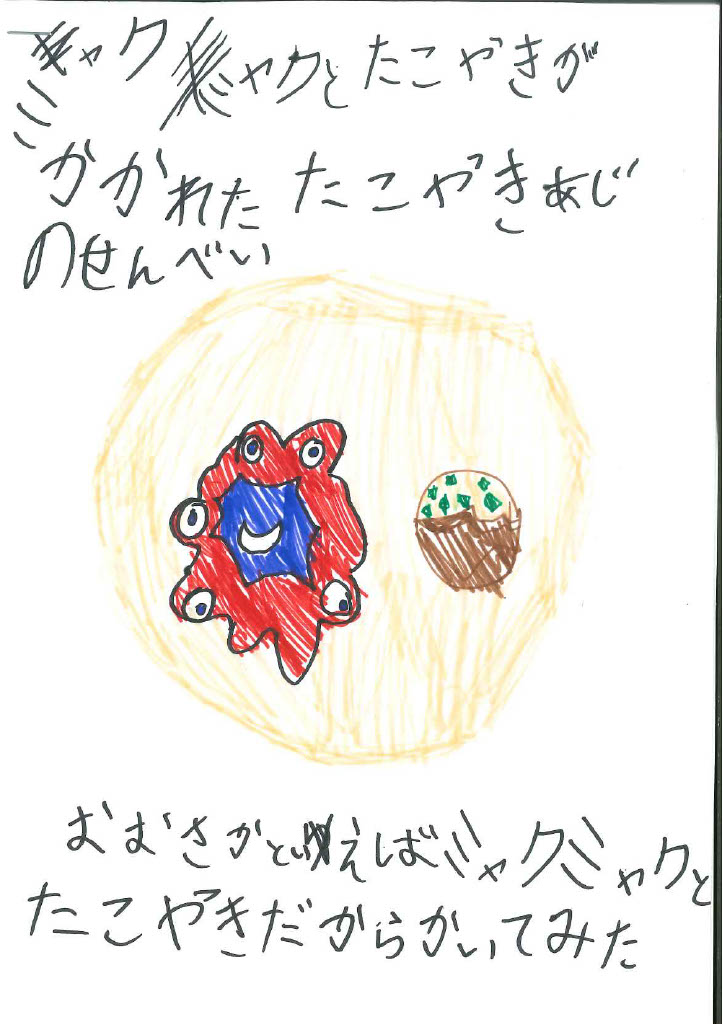 ミャクミャクとたこやきが
かかれたたこやきあじ
のせんべい
おおさかといえばミャクミャクと
たこやきだからかいてみた